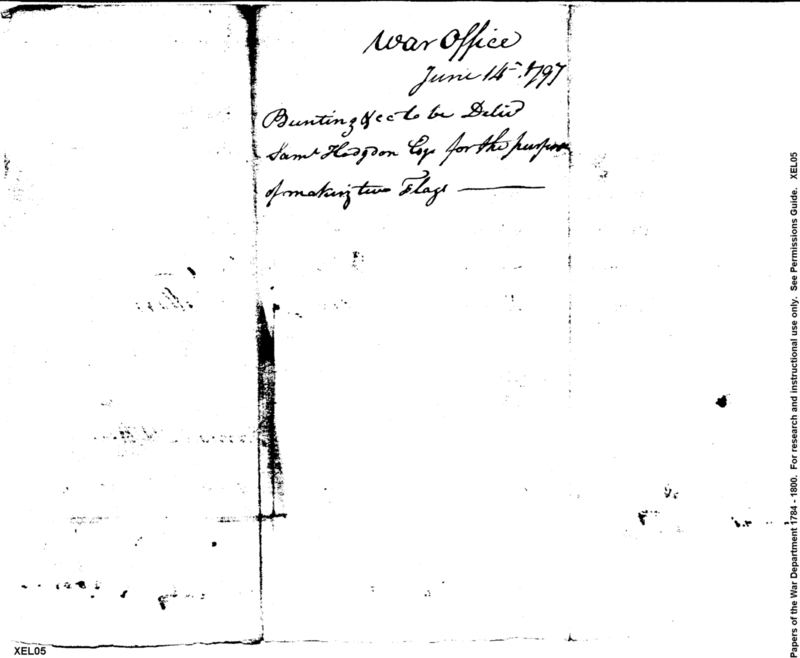 War Office
June 14th. 1797
Bunting &cc to be Delivd
Saml Hodgdon Esqr for the purpose
of making two Flags
XEL05
Papers of the War Department 1784 - 1800. For research and instructional use only. See Permissions Guide. XEL05